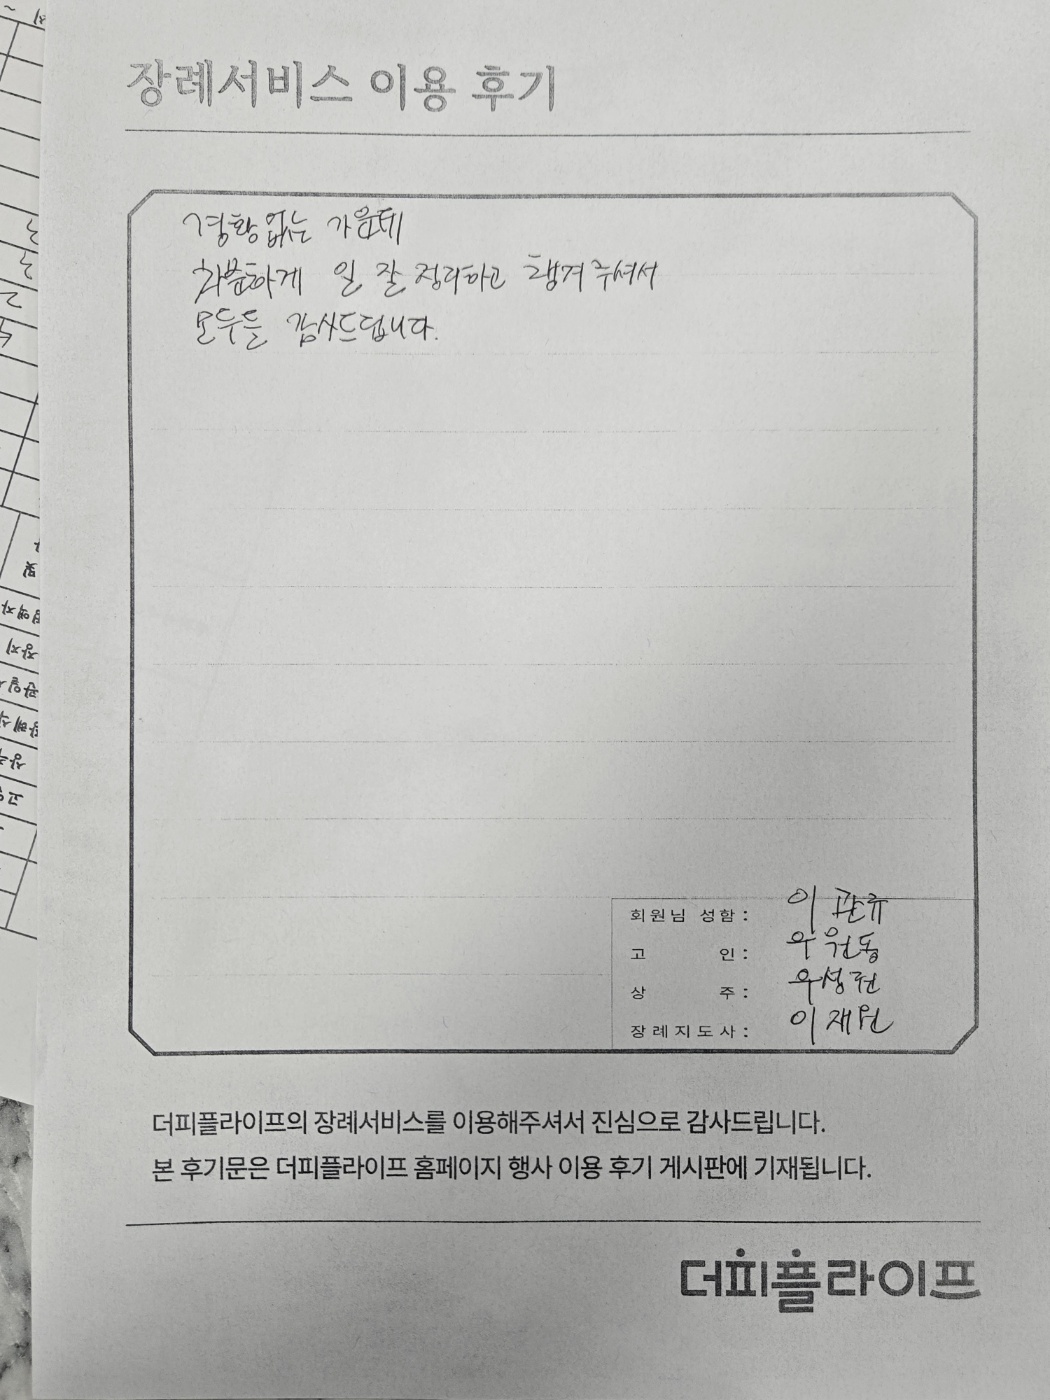 장례서비스 이용 후기
경황없는 가운데
차분하게 일 잘 정리하고 챙겨주셔서
모두들 감사드립니다.
회원님 성함 : 이관규
고 인 : 우원동
상 주 : 우성원
장례지도사 : 이재원
더피플라이프의 장례서비스를 이용해주셔서 진심으로 감사드립니다.
본 후기문은 더피플라이프 홈페이지 행사 이용 후기 게시판에 기재됩니다.
더피플라이프